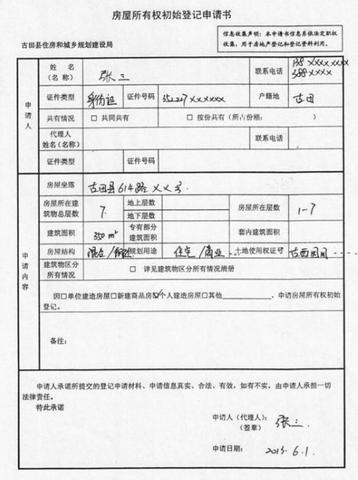 房屋所有权初始登记申请书
古田县住房和城乡规划建设局
信息收集声明：本申请书信息系依法定职权
收集，用于房地产登记和登记资料利用。
申请人
姓 名
（名 称）
张三
联系电话
138 xxxxxxxx
证件类型
身份证
证件号码
352227xxxxxx
户籍地
古田
共有情况
□ 共同共有
□ 按份共有（所占份额： ）
代理人
姓名（名称）
联系电话
证件类型
证件号码
申请内容
房屋坐落
古田县614路xx号
房屋所在建
筑物总层数
7
地上层数
地下层数
房屋所在层数
1-7
建筑面积
350 m²
专有部分
建筑面积
套内建筑面积
房屋结构
混合/
规划用途
住宅/商业
土地使用权证号
古西国用
建筑物区分
所有情况
□ 详见建筑物区分所有情况清册
因□单位建造房屋□新建商品房☑个人建造房屋□其他 ，申请房屋所有权初始
登记。
备注：
申请人承诺所提交的登记申请材料、申请信息真实、合法、有效，如有不实，由申请人承担一切
法律责任。
特此承诺
申请人（代理人）：
（签章）
张三
申请日期：
2015.6.1.